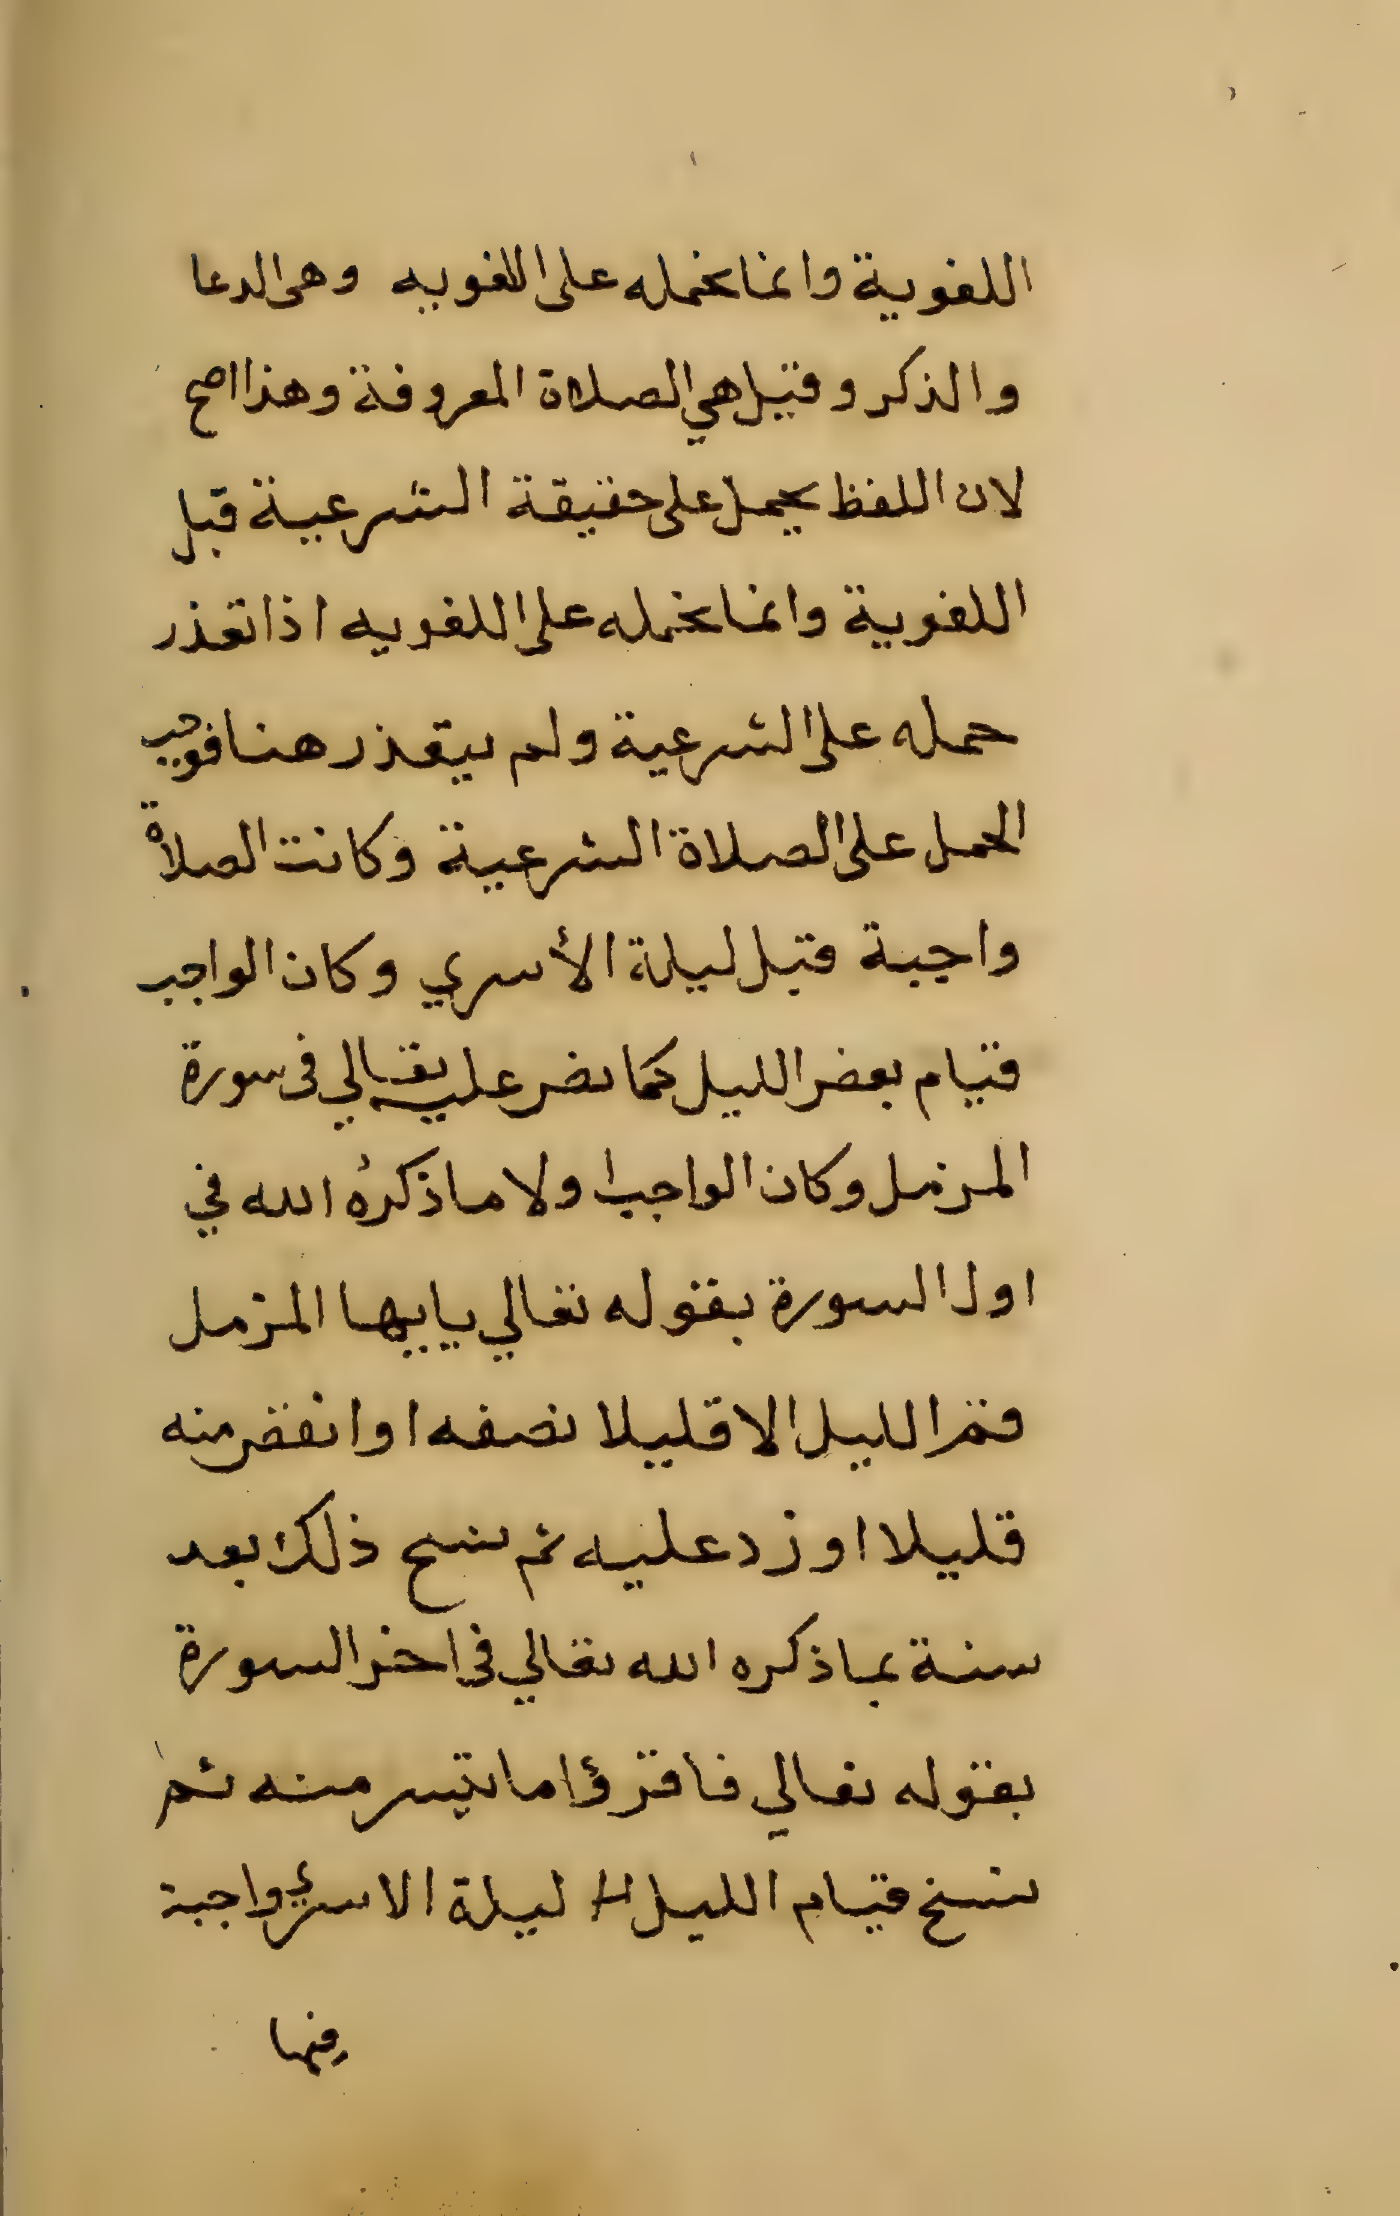 اللغوية وانما نحمله على اللغويه وهى الدعا
والذكر وقيل هي الصلاة المعروفة وهذا اصح
لان اللفظ يحمل على حقيقة الشرعية قبل
اللغوية وانما نحمله على اللغويه اذا تعذر
حمله على الشرعية ولم يتعذر هنا فوجب
الحمل على الصلاة الشرعية وكانت الصلاة
واجبة قبل ليلة الأسري وكان الواجب
قيام بعض الليل كما نص عليه تعالي فى سورة
المزمل وكان الواجب اولا ما ذكره الله في
اول السورة بقوله تعالي يا ايها المزمل
قم الليل الا قليلا نصفه او انقص منه
قليلا او زد عليه ثم نسخ ذلك بعد
سنة بما ذكره الله تعالي فى اخر السورة
بقوله تعالي فاقرؤا ما تيسر منه ثم
نسخ قيام الليل ليلة الاسري واجبة
فيها